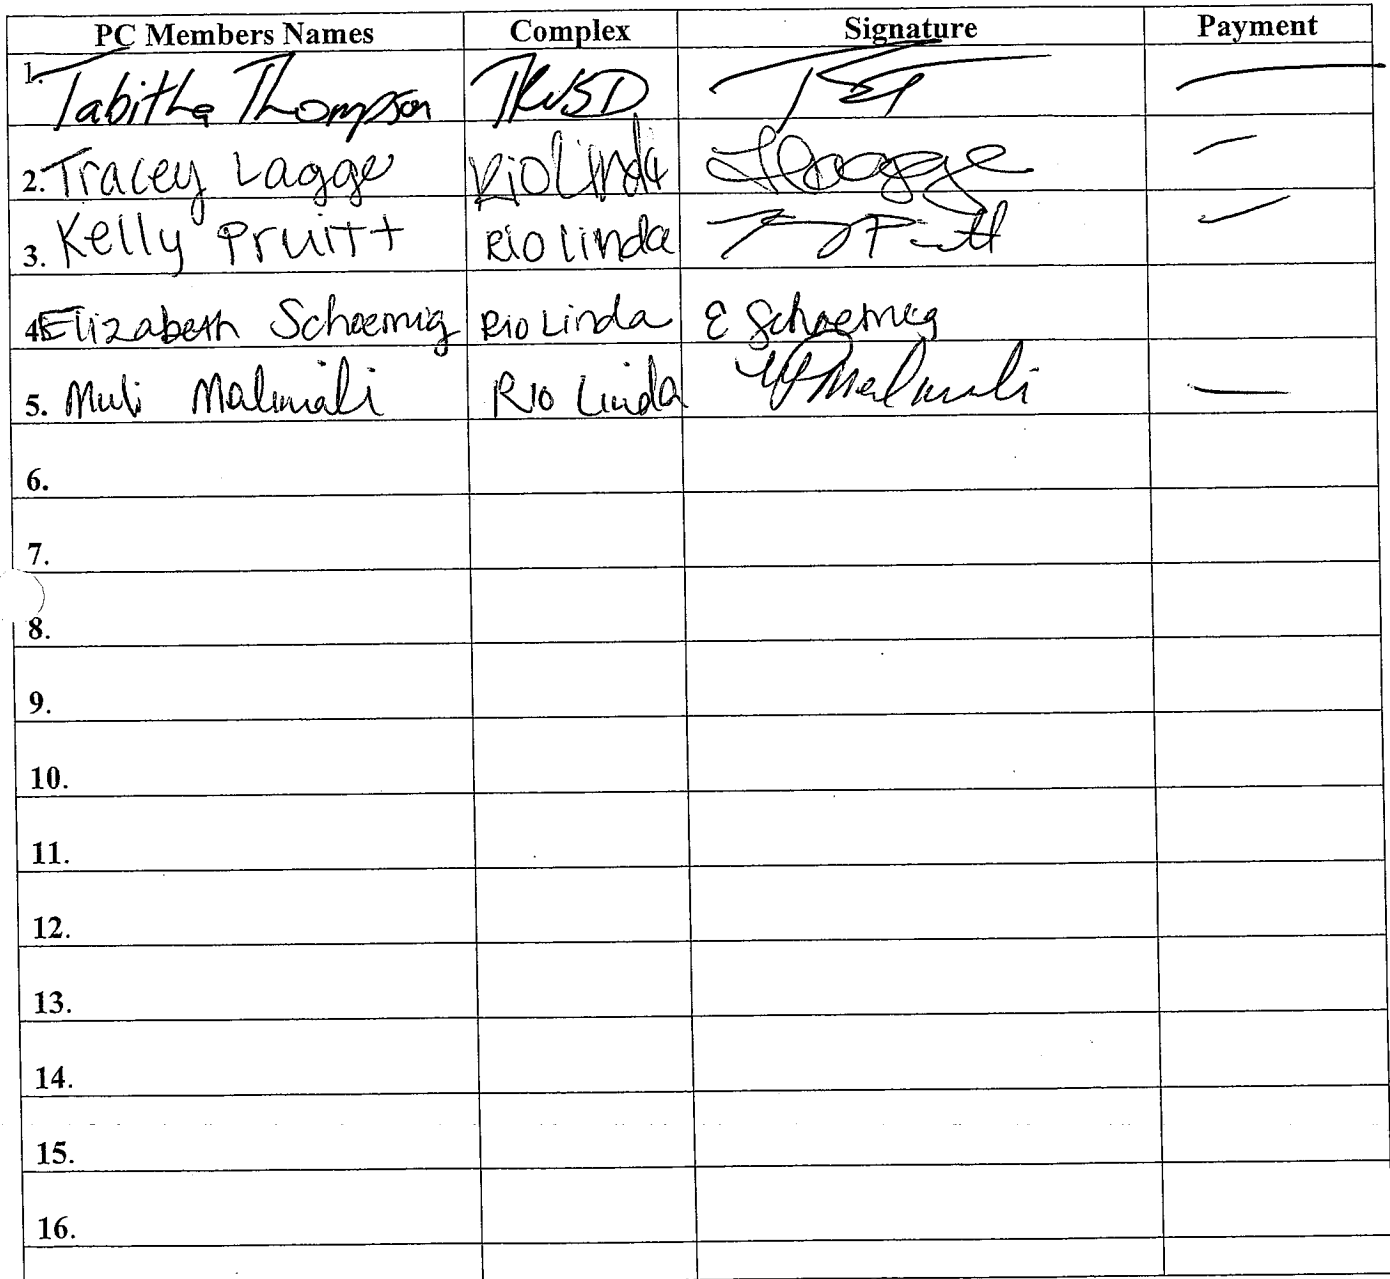 PC Members Names Complex Signature Payment
1. Tabitha Thompson TRUSD
2. Tracey Lagge Rio Linda TLagge
3. Kelly Pruitt Rio Linda
4. Elizabeth Schoemig Rio Linda E Schoemig
5. Muli Malimali Rio Linda Malimali
6.
7.
8.
9.
10.
11.
12.
13.
14.
15.
16.